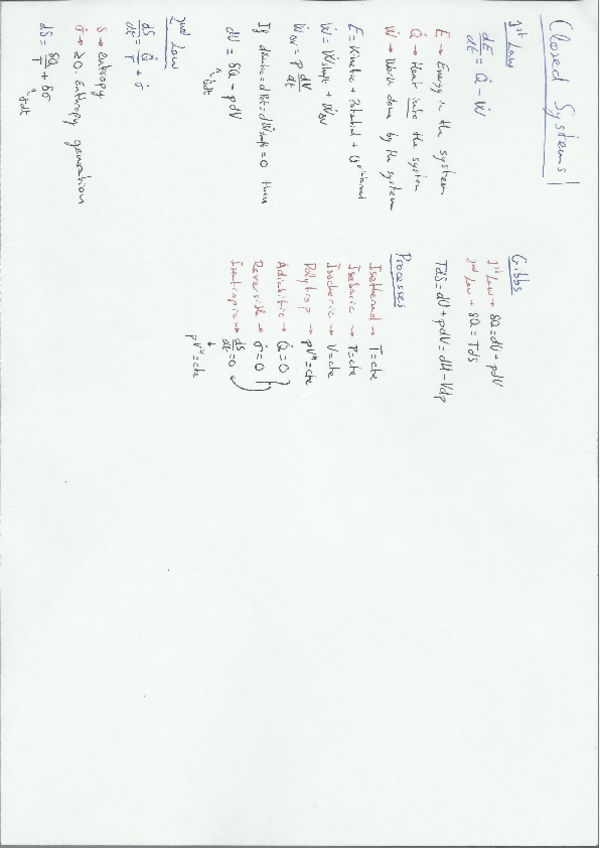 Closed Systems
1st Law
dE/dt = Q̇ - Ẇ
E → Energy in the system
Q̇ → Heat into the system
Ẇ → Work done by the system
E = Kinetic + Potential + U internal
Ẇ = Ẇshaft + Ẇov
Ẇov = P dV/dt
If dKinetic = dPot = dẆshaft = 0 then
dU = δQ - pdV
Q̇dt
2nd Law
dS/dt = Q̇/T + σ̇
S → entropy
σ̇ → ≥0. Entropy generation
dS = δQ/T + δσ
σ̇dt
Gibbs
1st Law → δQ = dU - pdV
2nd Law → δQ = TdS
TdS = dU + pdV = dH - Vdp
Processes
Isothermal → T=cte
Isobaric → P=cte
Isochoric → V=cte
Polytrop → pVⁿ=cte
Adiabitic → Q̇=0
Reversible → σ̇=0
Isentropic → dS/dt=0